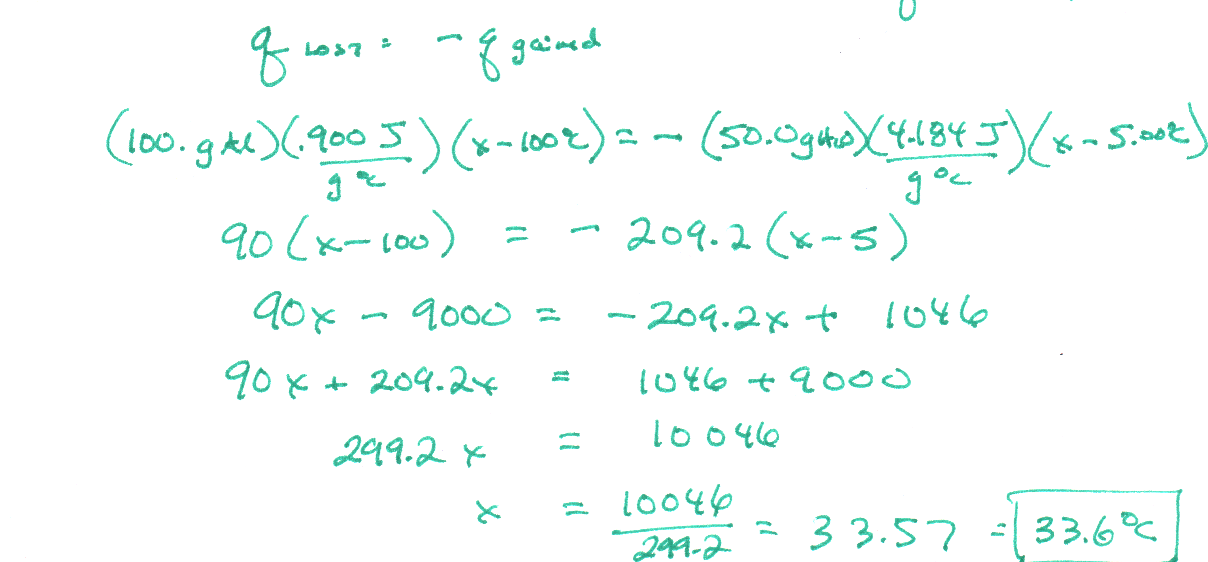 q lost = - q gained
(100. g Al)(.900 J / g °C)(x - 100°C) = - (50.0 g H2O)(4.184 J / g °C)(x - 5.00°C)
90 (x - 100) = - 209.2 (x - 5)
90x - 9000 = - 209.2x + 1046
90x + 209.2x = 1046 + 9000
299.2 x = 10046
x = 10046 / 299.2 = 33.57 = 33.6°C